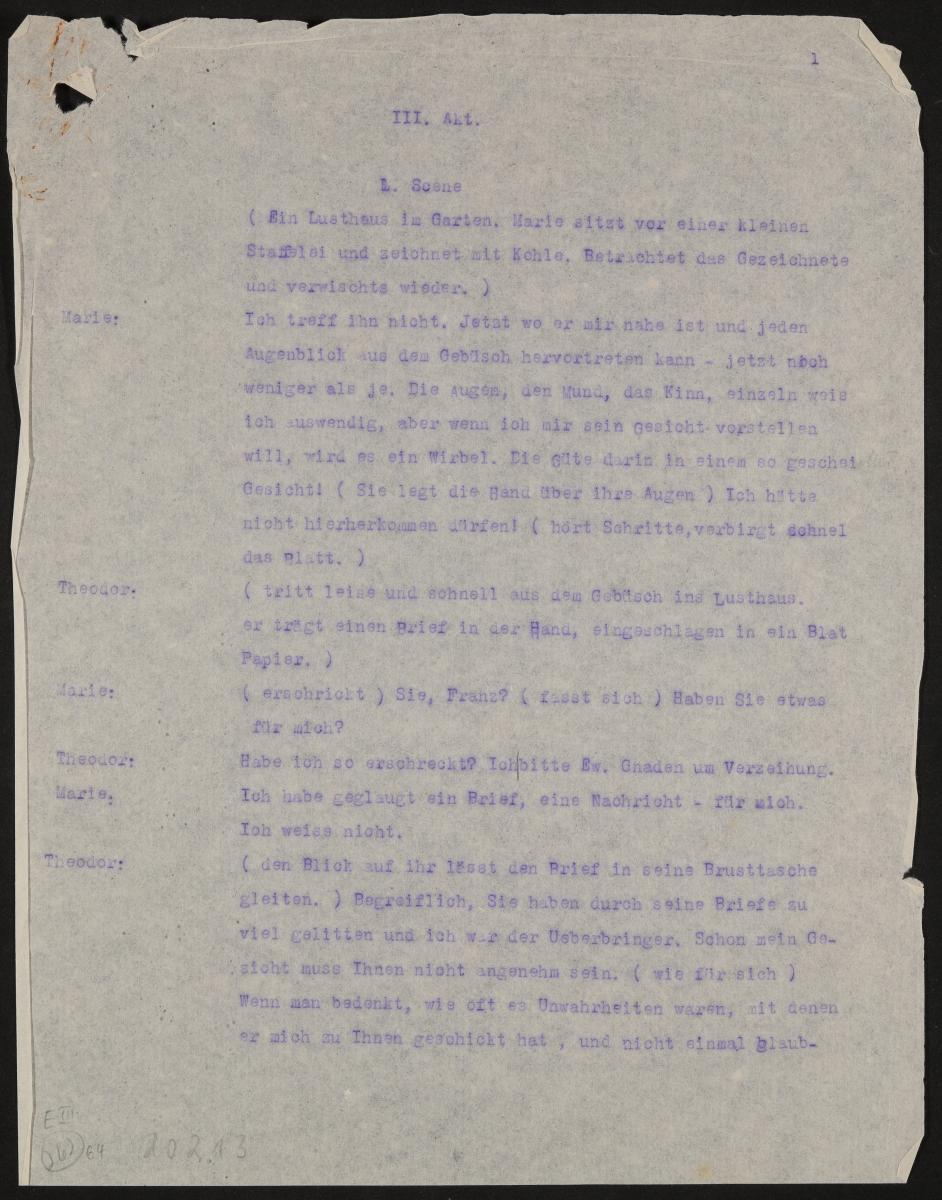 1
III. Akt.
1. Scene
( Ein Lusthaus im Garten. Marie sitzt vor einer kleinen
Staffelei und zeichnet mit Kohle. Betrachtet das Gezeichnete
und verwischts wieder. )
Marie: Ich treff ihn nicht. Jetzt wo er mir nahe ist und jeden
Augenblick aus dem Gebüsch hervortreten kann - jetzt noch
weniger als je. Die Augem, den Mund, das Kinn, einzeln weis
ich auswendig, aber wenn ich mir sein Gesicht vorstellen
will, wird es ein Wirbel. Die Güte darin in einem so geschei
Gesicht! ( Sie legt die Hand über ihre Augen ) Ich hätte
nicht hierherkommen dürfen! ( hört Schritte,verbirgt schnel
das Blatt. )
Theodor: ( tritt leise und schnell aus dem Gebüsch ins Lusthaus.
er trägt einen Brief in der Hand, eingeschlagen in ein Blat
Papier. )
Marie: ( erschrickt ) Sie, Franz? ( fasst sich ) Haben Sie etwas
für mich?
Theodor: Habe ich so erschreckt? Ich bitte Ew. Gnaden um Verzeihung.
Marie: Ich habe geglaugt ein Brief, eine Nachricht - für mich.
Ich weiss nicht.
Theodor: ( den Blick auf ihr lässt den Brief in seine Brusttasche
gleiten. ) Begreiflich, Sie haben durch seine Briefe zu
viel gelitten und ich war der Ueberbringer. Schon mein Ge-
sicht muss Ihnen nicht angenehm sein. ( wie für sich )
Wenn man bedenkt, wie oft es Unwahrheiten waren, mit denen
er mich zu Ihnen geschickt hat , und nicht einmal glaub-
E III
64 20213